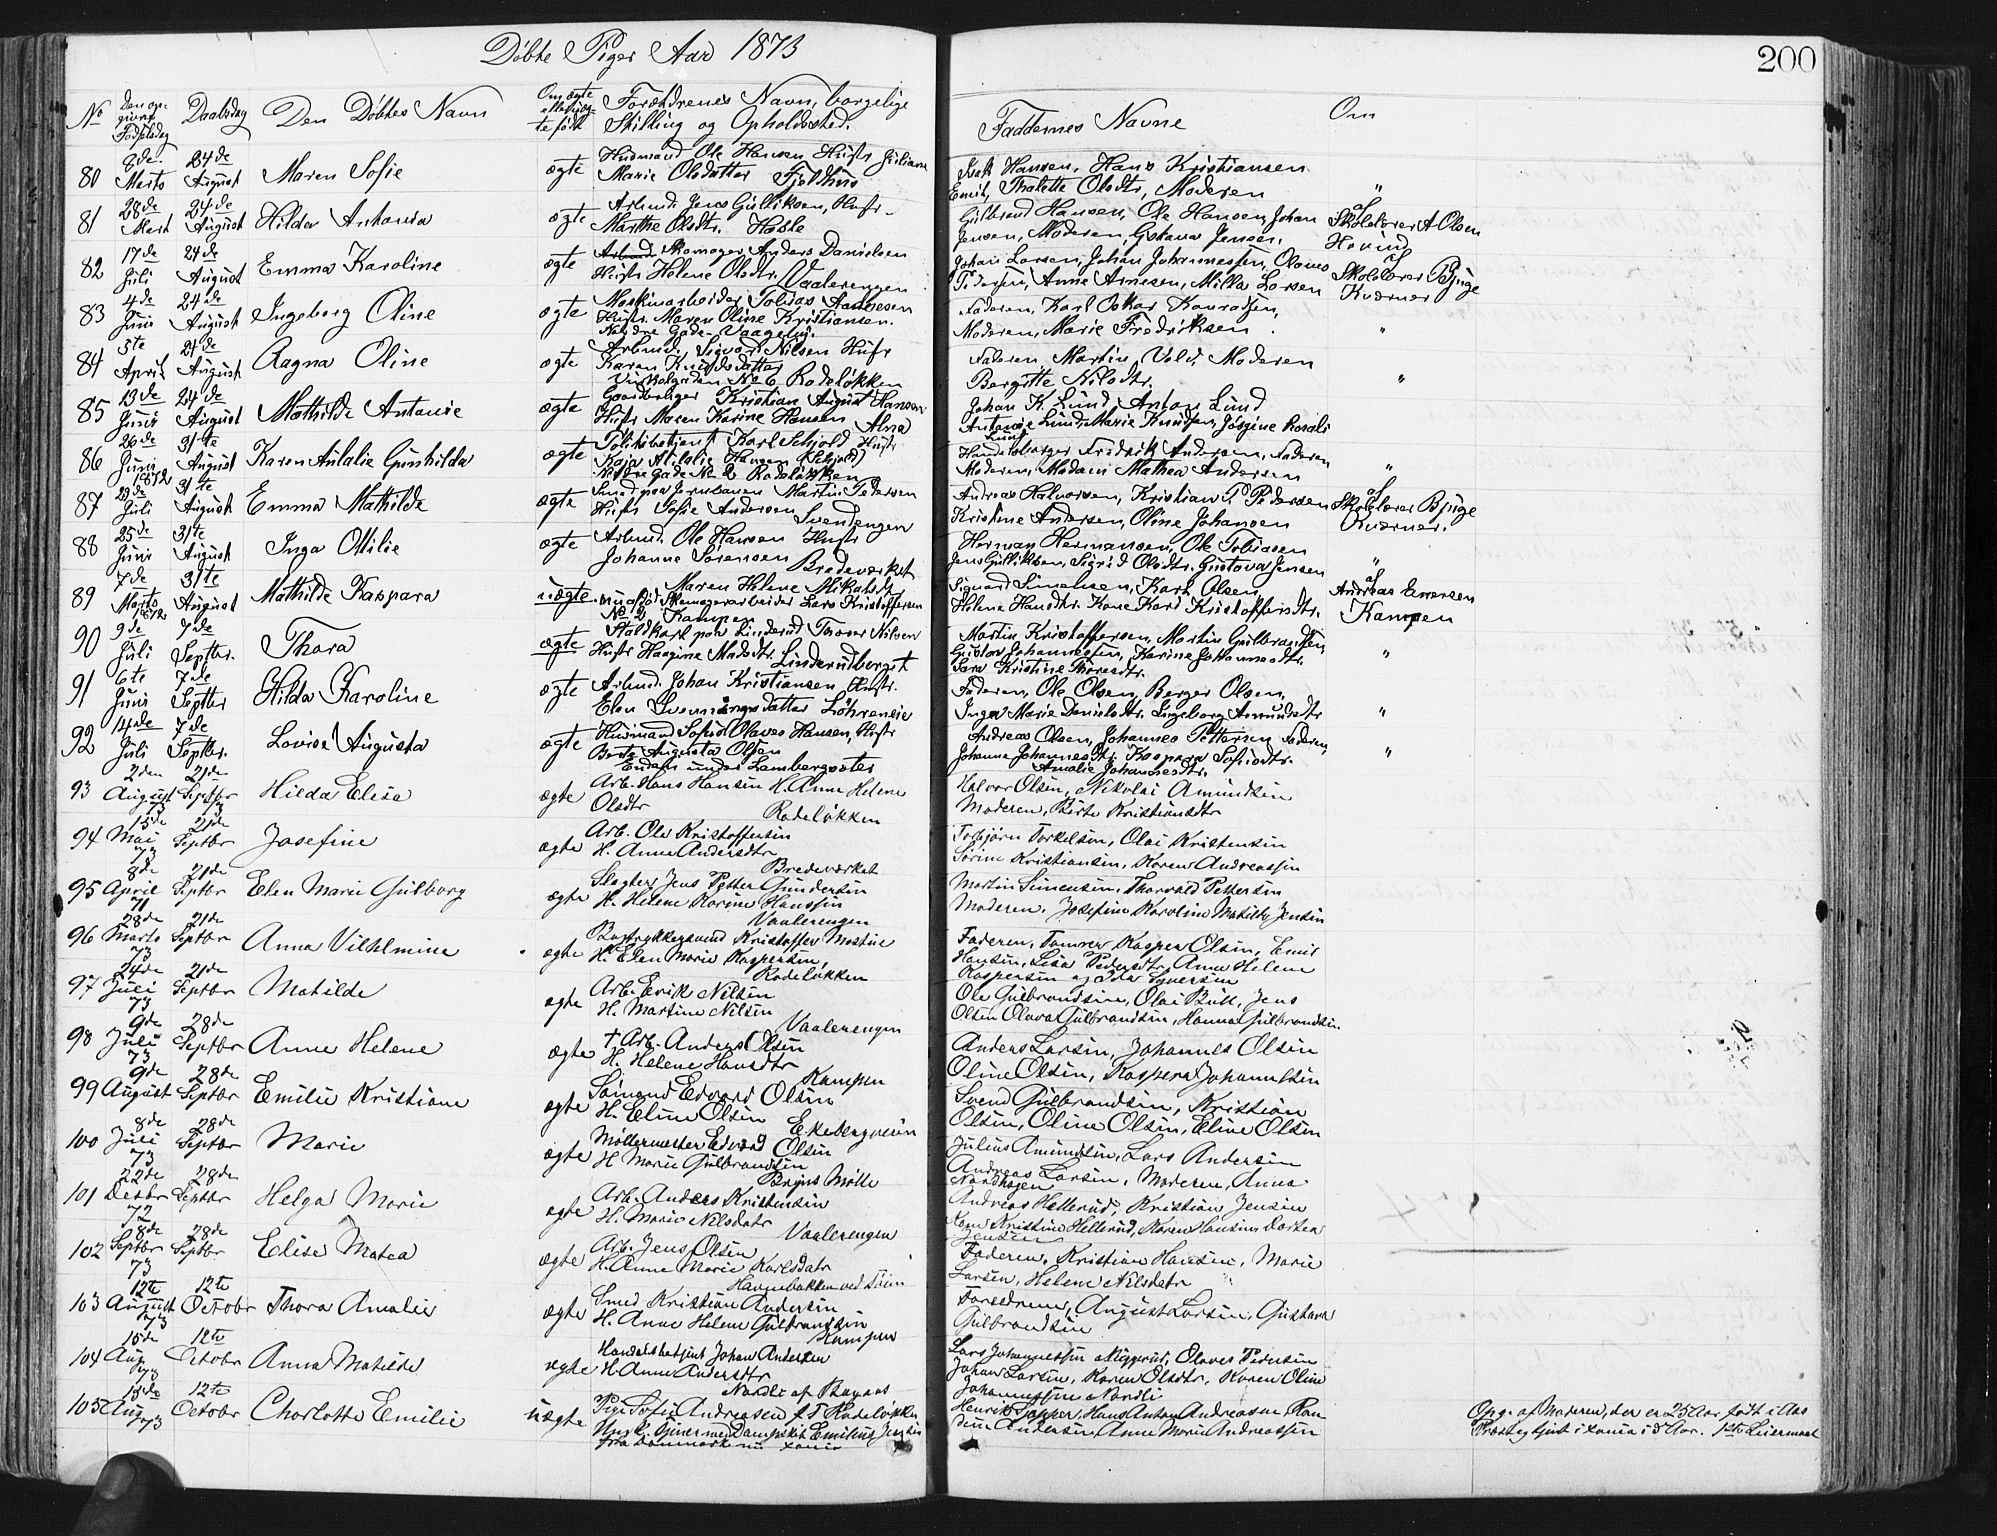 Døbte Piger Aar 1873
200
No Den opgivne Fødselsdag Daabsdag Den Døbtes Navn Om ægte eller uægte født Forældrenes Navn, borgelige Stilling og Opholdssted. Faddernes Navne Om
80 8de Marts 24de August Maren Sofie ægte Husmand Ole Hansen Hustr Juliane
Marie Olsdatter Fjeldhus
Isak Hansen, Hans Kristiansen
Emil, Thalette Olsdtr, Moderen "
81 28de Mart 24de August Hilda Antonia ægte Arbmd. Jens Gulliksen, Hustr
Marthe Olsdtr. Hasle
Gulbrand Hansen, Ole Hansen, Johan
Jensen, Moderen, Gustava Jensen.
af Skolelærer A Olsen
Hovind
82 17de Juli 24de August Emma Karoline ægte Skomager Anders Danielsen
Hustr Helene Olsdtr. Vaalerengen
Johan Larsen, Johan Johannessen, Olaves
Pedersen, Anne Arnesen, Milla Larsen
af Skolelærer Bjuge
Kværner
83 4de Juni 24de August Ingeborg Oline ægte Maskinarbeider Tobias Aanesen
Hustr. Maren Oline Kristiansen.
Nordre Gade
Faderen, Karl Oskar Konradsen,
Moderen, Marie Fredriksen "
84 5te April 24de August Ragna Oline ægte Arbmd. Sigvart Nilsen Hustr
Karen Knudsdatter
No 6 Rodeløkken
Faderen Martin Vold, Moderen
Bergitte Nilsdtr. "
85 13de Juni 24de August Mathilde Antonie ægte Gaardbruger Kristian August Hansen
Hustr Maren Karine Hansen Alna
Johan K. Lund Anton Lund
Antonie Lund, Marie Knudsen, Josefine
86 26de Juni 1872 31te August Karen Aulalie Gunhilda ægte Politibetjent Karl Schjold Hustr
Kaja Hansen (Schjold)
Nordre Gade No 2 Rodeløkken
Fredrik Andersen, Faderen
Moderen, Madam Mathea Andersen "
87 29de Juli 31te August Emma Mathilde ægte Smed paa Jernbanen Martin Pedersen
Hustr Sofie Andersen Svendengen
Andreas Halvorsen, Kristian P. Pedersen
Kristine Andersen, Oline Johansen
af Skolelærer Bjuge
Kværner.
88 25de Juni 31te August Inga Otilie ægte Arbmd. Ole Hansen Hustr
Johanne Sørensen Bredeverket
Herman Hermansen, Ole Tobiasen
Jens Gulliksen, Sigrid Olsdtr. Gustava Jensen "
89 7de Marts 1872 31te August Mathilde Kaspara uægte Maren Helene Mikalsdtr
Skomagerarbeider Lars Kristoffersen
No 2 Kampen
Sigvard Simensen, Karl Olsen,
Helene Hansdtr. Kone Kari Kristoffersdtr.
af Andreas Evensen
Kampen
90 9de Juli 7de Septbr. Thora ægte Staldkarl paa Linderud Thorer Nilsen
Hustr Haagine Madsdtr Linderudborget
Martin Kristoffersen, Martin Gulbrandsen,
Gustav Johannessen, Karine Johannesdtr.
Sara Kristine Thoresdtr. "
91 6te Juni 7de Septbr Hilda Karoline ægte Arbmd. Johan Kristiansen Hustr.
Elen Svenningsdatter
Faderen, Ole Olsen, Berger Olsen,
Inga Marie Danielsdtr. Ingeborg Amundsdtr "
92 14de Juli 7de Septbr. Lovise Augusta ægte Husmand Sofus Olaves Hansen, Hustr
Berte Augusta Olsen
under Lambergsæter
Andreas Olsen, Johannes Pettersen Faderen,
Johanna Johannesdtr. Kaspara Sofusdtr.
Amalie Johannesdtr. "
93 2den August 73 21de Septbr Hilda Elisa ægte Arb. Hans Hansen H. Anne Helene
Olsdtr Rodeløkken
Halvor Olsen, Nikolai Amundsen
Moderen, Berte Kristiansdtr
94 15de Mai 73 21de Septbr Josefine ægte Arb. Ole Kristoffersen
H. Anne Andersdtr
Bredeverket
Torbjørn Torkelsen, Olai Kristensen
Sørine Kristiansen, Karen Andreassen
95 8de April 71 21de Septbr Elen Marie Gulborg ægte Slagter Jens Petter Gundersen
H. Helene Karine Hanssen
Vaalerengen
Martin Simensen, Thorvald Pettersen
Moderen, Josefine Karoline Matilde Jensen
96 28de Marts 73 21de Septbr Anna Vilhelmine ægte Bogtrykkersvend Kristoffer
H. Elen Marie Kaspersen,
Rodeløkken
Faderen, Tømrer Kasper Olsen, Emil
Hansen, Lisa Pedersdtr, Anne Helene
Kaspersen og Ida Syversen
97 24de Juli 73 21de Septbr Matilde ægte Arb. Erik Nilsen
H. Martine Nilsen
Vaalerengen
Ole Gulbrandsen, Olai Bull, Jens
Olsen Olava Gulbrandsen, Hanna Gulbrandsen
98 9de Juli 73 28de Septbr Anne Helene ægte † Arb. Anders Olsen
H. Helene Hansdtr
Kampen
Anders Larsen, Johannes Olsen
Oline Olsen, Kaspera Johannesen
99 9de August 28de Septbr Emilie Kristiane ægte Sømand Edvard Olsen
H. Eline Olsen
Ekebergveien
Svend Gulbrandsen, Kristian
Olsen, Oline Olsen, Eline Olsen
100 8de Juli 73 28de Septbr Marie ægte Møllermester Edvard Olsen
H Marie Gulbrandsen
Bryns Mølle
Julius Amundsen, Lars Andersen
Andreas Larsen, Moderen, Anna
Nordhagen
101 22de Decbr 72 28de Septbr Helga Marie ægte Arb. Anders Kristensen
H. Marie Nilsdatr
Vaalerengen
Andreas Hellerud, Kristian Jensen
Kristine Hellerud, Karen Hansine Dortea
Jensen
102 28de Septbr 73 28de Septbr Elise Matea ægte Arb. Jens Olsen
H. Anne Marie Karlsdatr
Havnebakken ved
Faderen, Kristian Hansen, Marie
Larsen, Helene Nilsdatr
103 12te August 73 12te Octobr Thora Amalie ægte Smed Kristian Andersen
H. Anne Helene Gulbrandsen
Kampen
Forældrene, August Larsen, Gustava
Gulbrandsen
104 15de Aug 73 12te Octobr Anna Matilde ægte Handelsbetjent Johan Andersen
H Anne Andersdtr
Nordli af
Lars Johannessen, Olaves Pedersen
Johan Larsen, Karen Olsdtr, Karen Oline
Johannessen Nordli
105 18de Aug 73 12te Octobr Charlotte Emilie uægte Pige Sofie Andreasen f. T Rodeløkken
Ungk. Dampskib Emilius Jensen
fra Danmark nu
Henrik Tapper, Hans Anton Andreasen,
Andersen, Anne Marie Andreassen
Opg. af Moderen, der er 25 Aar født i Aas
Præstegjeld i 5 Aar. 1ste Leiermaal